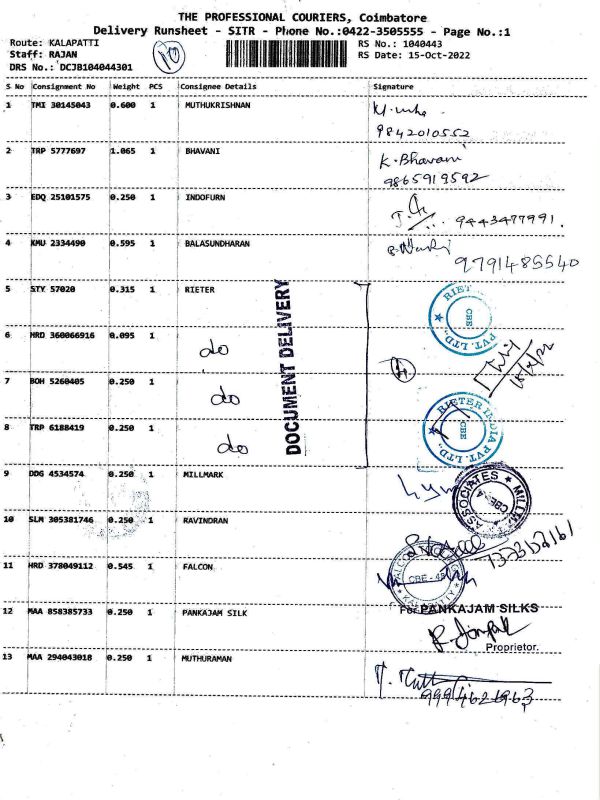 THE PROFESSIONAL COURIERS, Coimbatore
Delivery Runsheet - SITR - Phone No.:0422-3505555 - Page No.:1
Route: KALAPATTI
Staff: RAJAN
DRS No.: DCJB104044301
10
RS No.: 1040443
RS Date: 15-Oct-2022
S No Consignment No Weight PCS Consignee Details Signature
1 TMI 30145043 0.600 1 MUTHUKRISHNAN
9842010552
2 TRP 5777697 1.065 1 BHAVANI K. Bhavani
9865919592
3 EDQ 25101575 0.250 1 INDOFURN 9443477991.
4 KMU 2334490 0.595 1 BALASUNDHARAN
9791485540
5 STY 57020 0.315 1 RIETER
RIETER PVT. LTD., CBE
6 HRD 360066916 0.095 1 do
7 BOH 5260405 0.250 1 do
8 TRP 6188419 0.250 1 do
DOCUMENT DELIVERY
4
RIETER INDIA PVT. LTD., CBE
9 DDG 4534574 0.250 1 MILLMARK
ASSOCIATES MILLM CBE-4
10 SLM 305381746 0.250 1 RAVINDRAN
11 HRD 378049112 0.545 1 FALCON
FALCON CBE - 48
12 MAA 858385733 0.250 1 PANKAJAM SILK
For PANKAJAM SILKS
Proprietor.
13 MAA 294043018 0.250 1 MUTHURAMAN
9994621963